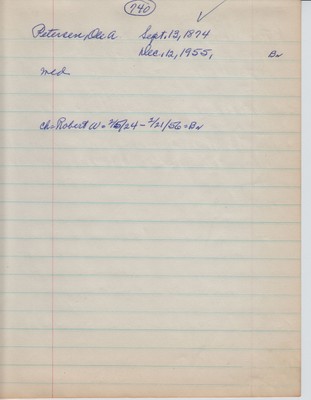 740
Petersen, Ole A Sept. 13, 1874
Dec. 12, 1955, Bu
med
ch = Robert W = /24 - 2/21/56 = Bu